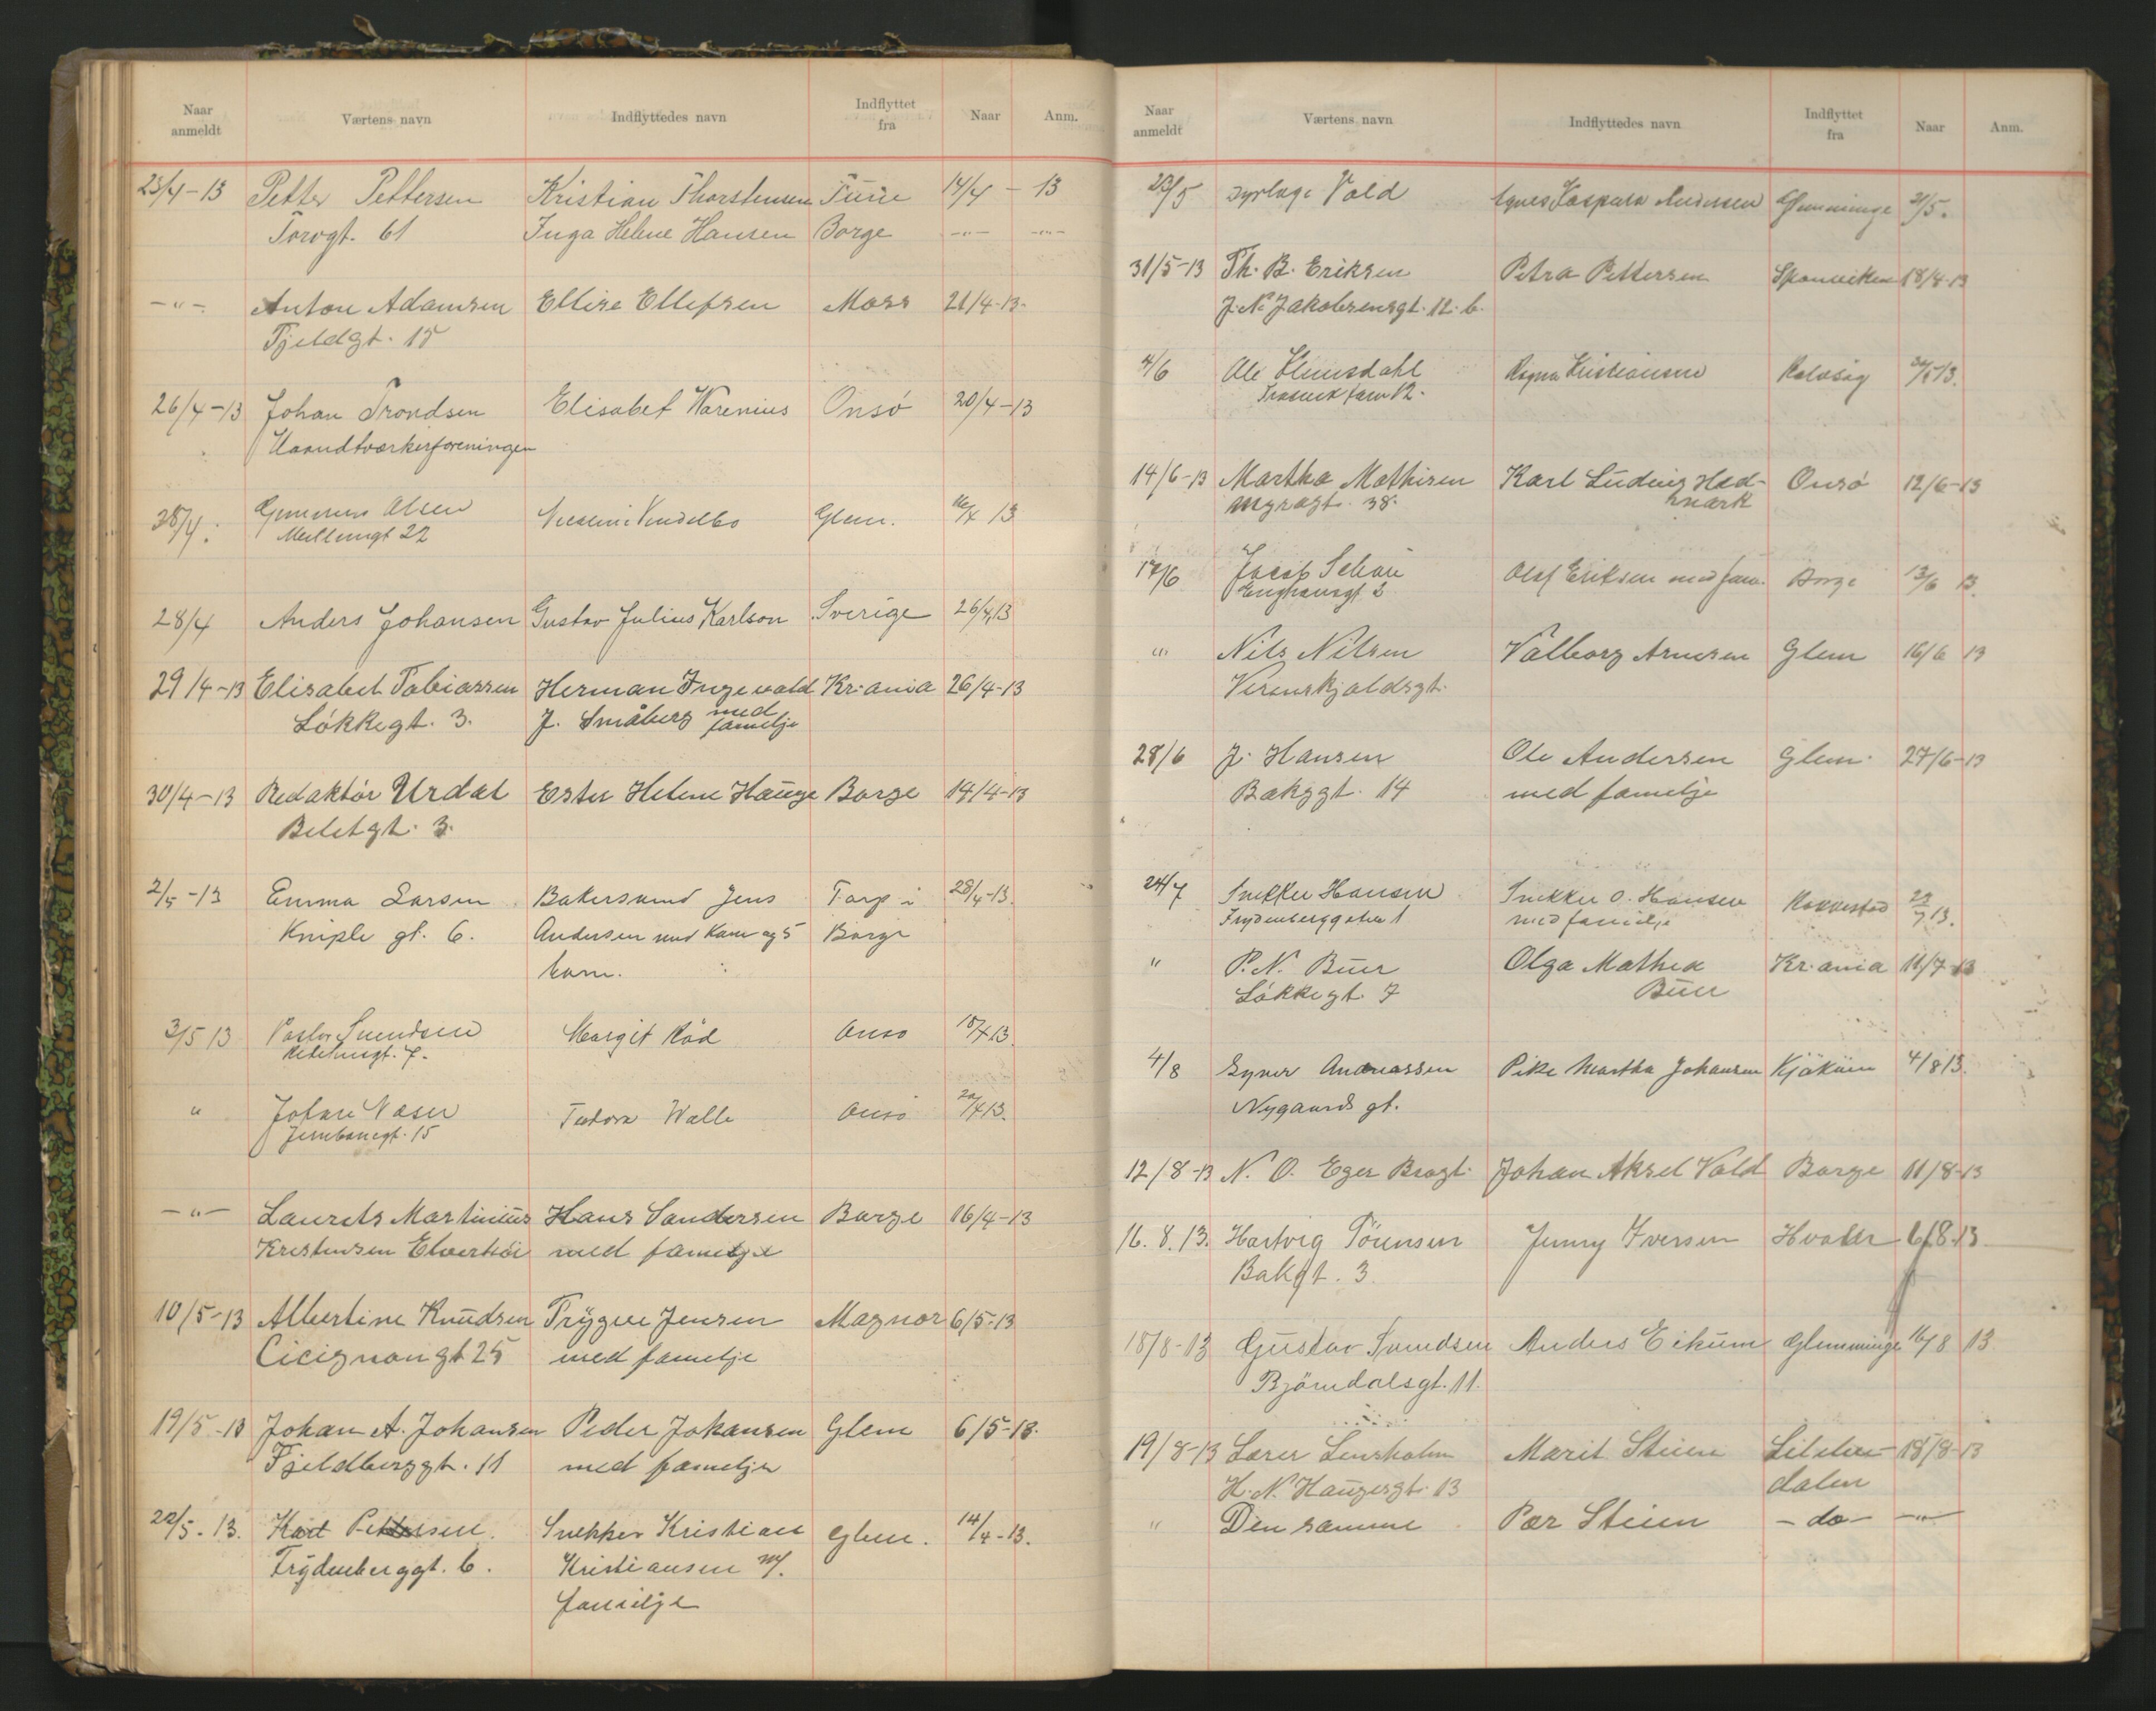 Naar anmeldt Værtens navn Indflyttedes navn Indflyttet fra Naar Anm.
23/4-13 Petter Pettersen Kristian Thorstensen Tune 14/4 - 13
Torvgt. 61 Inga Helene Hansen Borge -"- -"-
-"- Anton Adamsen Ellise Ellefsen Moss 21/4-13.
Fjeldgt. 15
26/4-13 Johan Trondsen Elisabet Warenius Onsö 20/4-13
Haandtværkerforeningen
28/4. Olsen Vendelbo Glem. 13
22
28/4 Anders Johansen Gustav Julius Karlson Sverige 26/4 13
29/4-13 Elisabet Tobiassen Herman Ingevald Kr.ania 26/4-13
Lökkegt. 3. J. Småberg med familje
30/4-13 Redaktör Urdal Ester Helene Hauge Borge 14/4-13
Beletgt. 3.
2/5-13 Emma Larsen Bakersvend Jens Torp i 28/4-13.
Kniple gt. 6. Andersen med Kone og 5 Borge
barn.
3/5 13 Pastor Svendsen Margit Röd Onsö 13.
7.
" Johan Naser Teodora Walle Onsö 20/4 13.
Jernbanegt. 15
-"- Laurits Martinius Hans Sandersen Borge 16/4-13
Kristensen med familje
10/5-13 Albertine Knudsen Trygve Jensen Magnor 6/5-13
Cicignongt 25 med familje
19/5-13 Johan A. Johansen Peder Johansen Glem 6/5-13.
Fjeldberggt. 11 med familje
22/5-13. Karl Pettersen. Snekker Kristian Glem. 14/4-13.
Frydenberggt. 6. Kristiansen m/.
familje
Naar anmeldt Værtens navn Indflyttedes navn Indflyttet fra Naar Anm.
Vold Agnes Kaspara Andersen Glemminge /5.
31/5-13 Th. B. Eriksen Petra Pettersen Sponviken 18/4-13
J. N. Jakobsensgt. 12. b.
4/6 Ole Ragna Kristiansen 13.
12.
14/6-13 Martha Mathisen Karl Ludvig Hed- Onsö 12/6-13
Myragt. 38. mark
17/6 Jacob Olaf Eriksen med fam. Borge 13/6 13.
Enghausgt 3
"" Nils Nilsen Valborg Arnesen Glem 16/6 13
Verenskjoldsgt.
28/6 J. Hansen Ole Andersen Glem. 27/6-13
Bakgt. 14 med familje
24/7 Snekker Hansen Snekker O. Hansen Rakkestad 22/7 13.
Frydenberggaten 1 med familje
" P. N. Buer Olga Mathea Kr.ania 11/7-13
Lökkegt. 7 Buer
4/8 Syver Andreassen Pike Martha Johansen Kjöküm 4/8 13.
Nygaards gt.
12/8-13 N. O. Eger Brogt. Johan Aksel Vold Borge 11/8-13
16.8.13. Hartvig Jenny Iversen Hvaler 6/8.13.
Bakgt. 3.
18/8-13 Gustav Svendsen Anders Eikum Glemminge 16/8 13.
Björndalsgt. 11.
19/8-13 Lærer Lensholm Marit Steien Lilelve- 18/8-13
H. N. Haugesgt. 13 dalen
" Den samme Per Steien - do - -"-